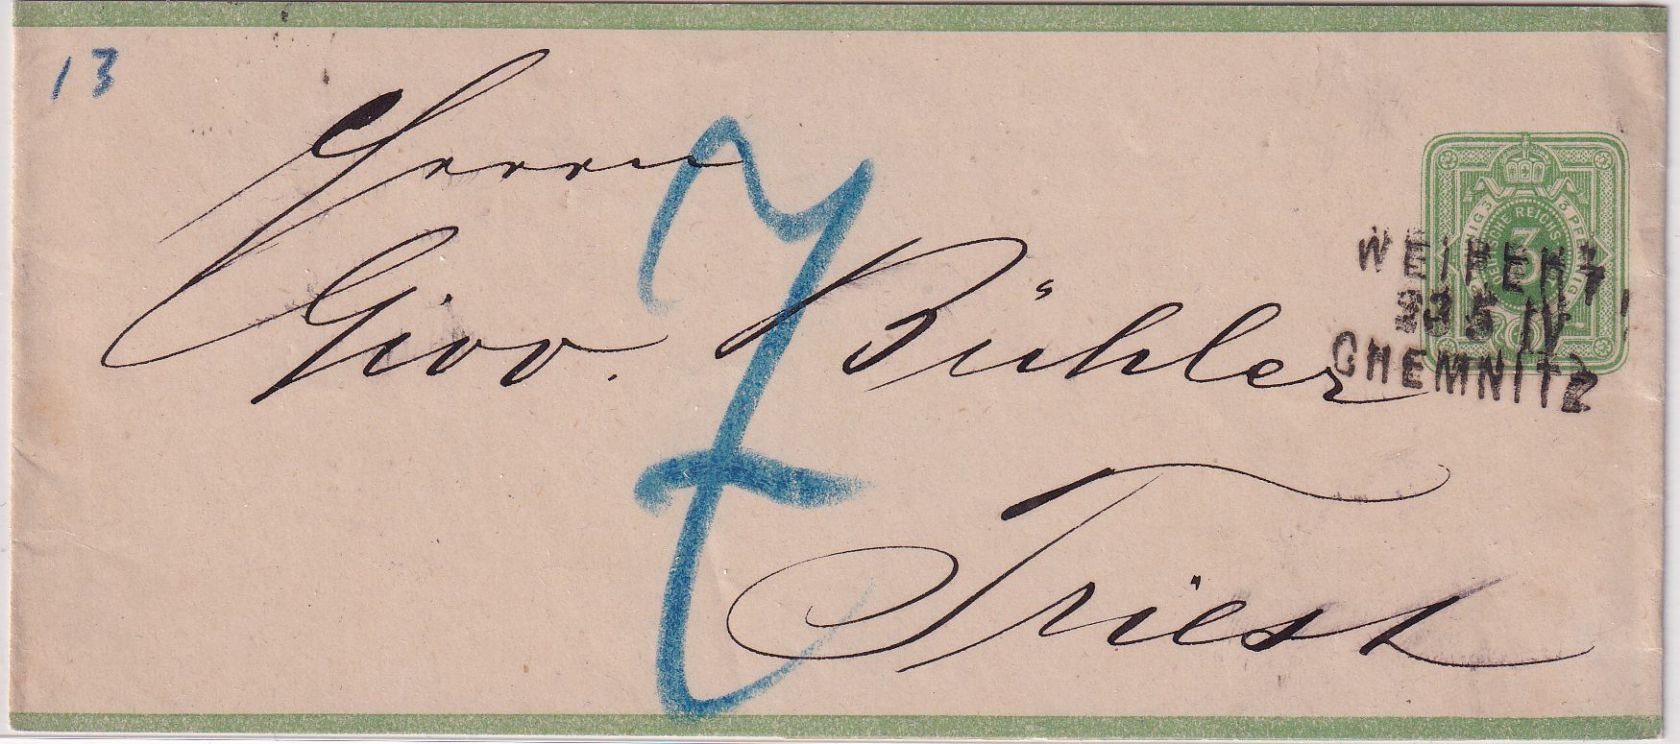 13
7
Herrn
Giov. Bühler
Triest
3 PFENNIG 3
DEUTSCHE REICHS
3
23 5 IV
CHEMNITZ